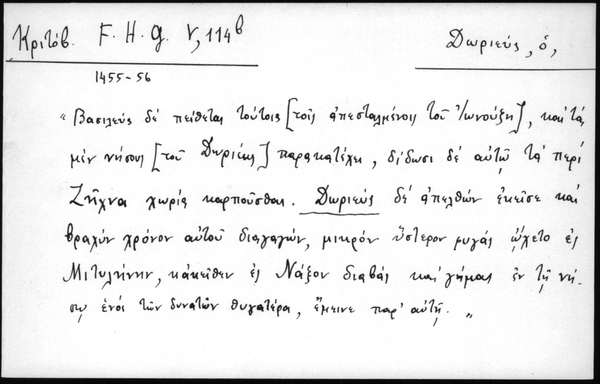 Κριτόβ. F. H. G. V, 114b
Δωριεύς, ὁ,
1455-56
"Βασιλεύς δέ πείθεται τούτοις [τοῖς ἀπεσταλμένοις τοῦ Ἰωνούζη], καί τάς
μέν νήσους [τοῦ Δωριέως] παρακατέχει, δίδωσι δέ αὐτῷ τά περί
Ζήχνα χωρία καρποῦσθαι. Δωριεύς δέ ἀπελθών ἐκεῖσε καί
βραχύν χρόνον αὐτοῦ διαγαγών, μικρόν ὕστερον φυγάς ᾤχετο ἐς
Μιτυλήνην, κἀκεῖθεν ἐς Νάξον διαβάς καί γήμας ἐν τῇ νή-
σῳ ἑνός τῶν δυνατῶν θυγατέρα, ἔμεινε παρ' αὐτῇ. "